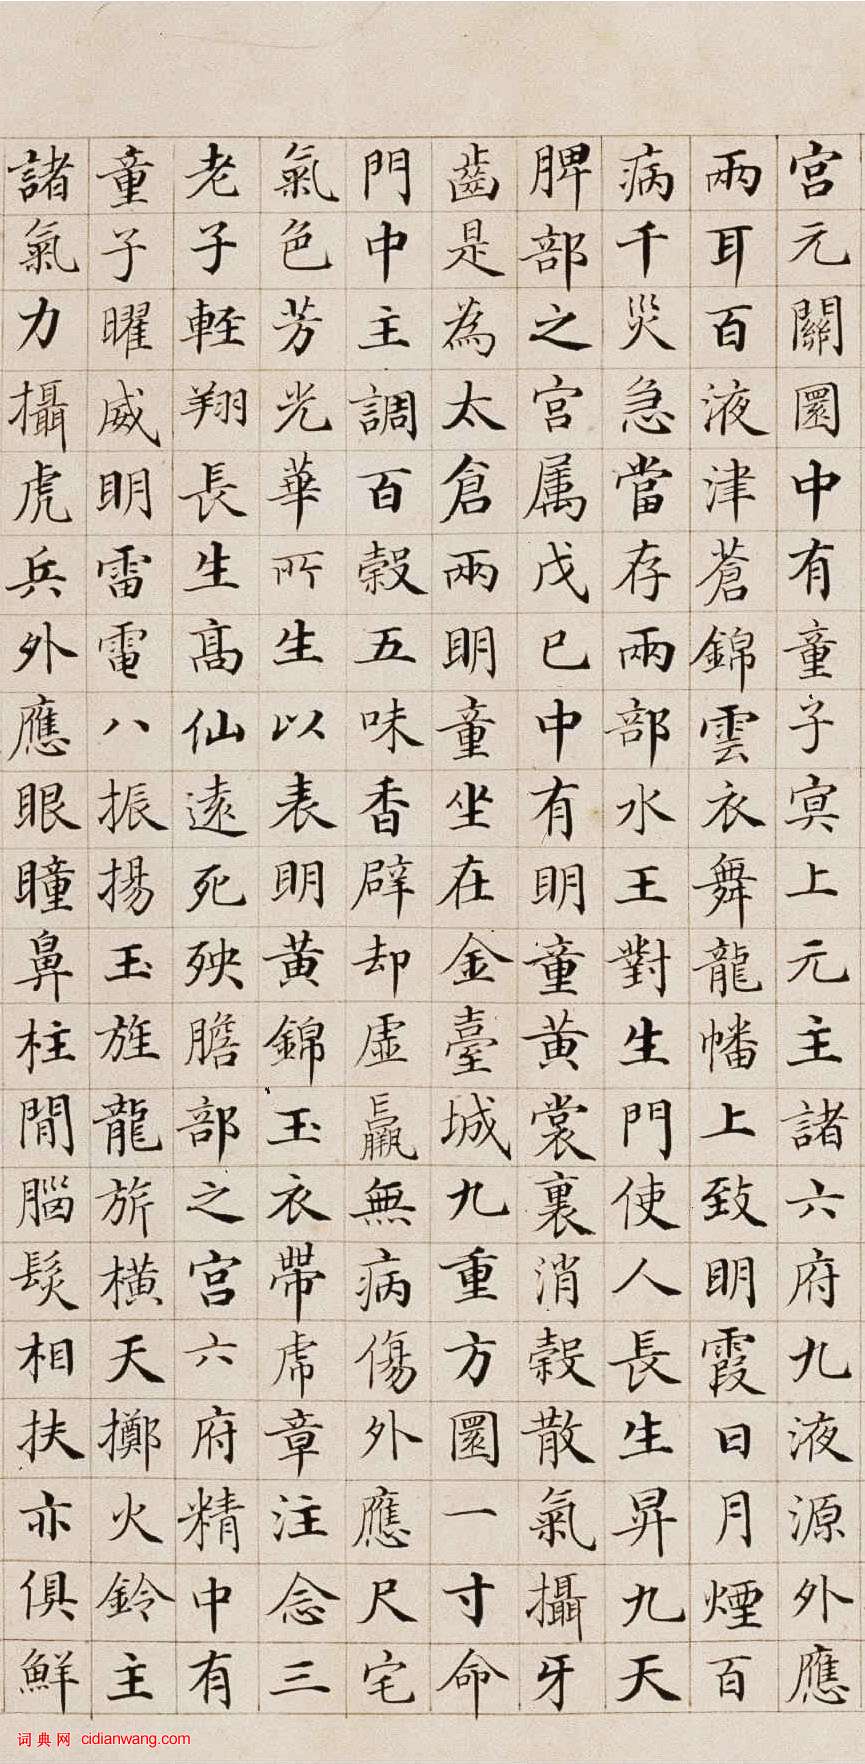 宮元關圜中有童子冥上元主諸六府九液源外應
兩耳百液津蒼錦雲衣舞龍幡上致明霞日月煙百
病千災急當存兩部水王對生門使人長生昇九天
脾部之宮属戊己中有明童黃裳裏消榖散氣攝牙
齒是為太倉兩明童坐在金臺城九重方圜一寸命
門中主調百榖五味香辟却虛羸無病傷外應尺宅
氣色芳光華所生以表明黃錦玉衣帶虎章注念三
老子輕翔長生高仙遠死殃膽部之宮六府精中有
童子曜威明雷電八振揚玉旌龍旂橫天擲火鈴主
諸氣力攝虎兵外應眼瞳鼻柱間腦髮相扶亦俱鮮
词典网 cidianwang.com